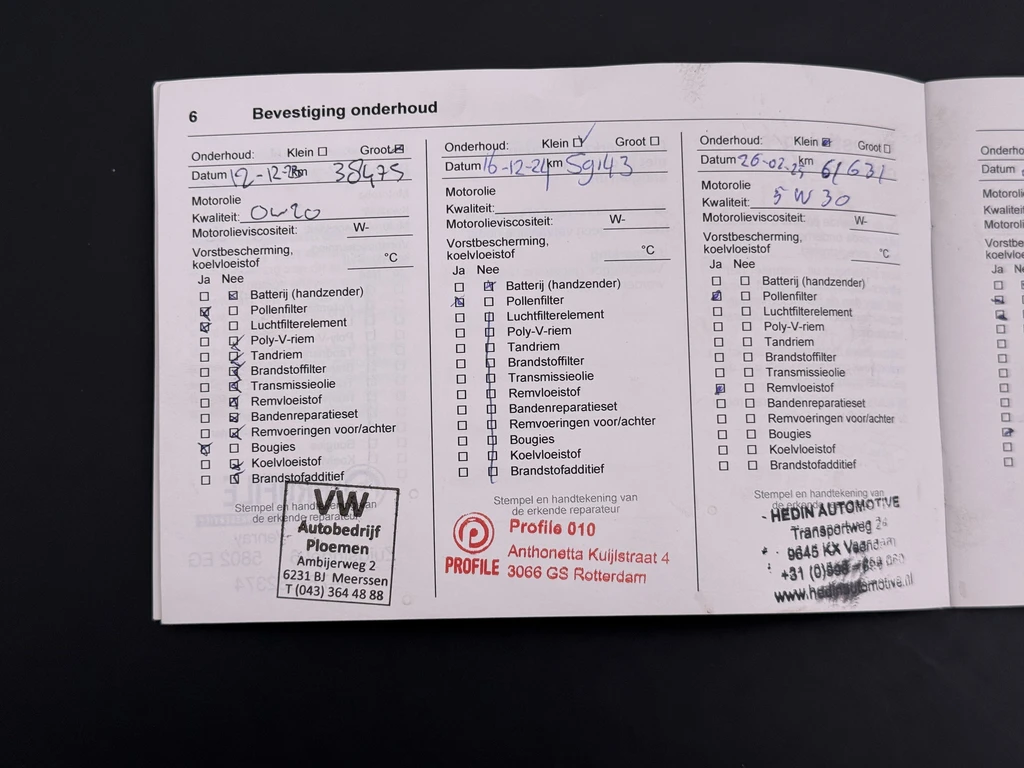 6 Bevestiging onderhoud
Onderhoud: Klein Groot
Datum 12-12-23 km 38475
Motorolie
Kwaliteit: 0w20
Motorolieviscositeit: W-
Vorstbescherming,
koelvloeistof °C
Ja Nee
Batterij (handzender)
Pollenfilter
Luchtfilterelement
Poly-V-riem
Tandriem
Brandstoffilter
Transmissieolie
Remvloeistof
Bandenreparatieset
Remvoeringen voor/achter
Bougies
Koelvloeistof
Brandstofadditief
Stempel en handtekening van
de erkende reparateur
VW
Autobedrijf
Ploemen
Ambijerweg 2
6231 BJ Meerssen
T (043) 364 48 88
Onderhoud: Klein Groot
Datum 16-12-24 km 59143
Motorolie
Kwaliteit:
Motorolieviscositeit: W-
Vorstbescherming,
koelvloeistof °C
Ja Nee
Batterij (handzender)
Pollenfilter
Luchtfilterelement
Poly-V-riem
Tandriem
Brandstoffilter
Transmissieolie
Remvloeistof
Bandenreparatieset
Remvoeringen voor/achter
Bougies
Koelvloeistof
Brandstofadditief
Stempel en handtekening van
de erkende reparateur
PROFILE
Profile 010
Anthonetta Kuijlstraat 4
3066 GS Rotterdam
Onderhoud: Klein Groot
Datum 26-02-25 km 61631
Motorolie
Kwaliteit: 5 W 30
Motorolieviscositeit: W-
Vorstbescherming,
koelvloeistof °C
Ja Nee
Batterij (handzender)
Pollenfilter
Luchtfilterelement
Poly-V-riem
Tandriem
Brandstoffilter
Transmissieolie
Remvloeistof
Bandenreparatieset
Remvoeringen voor/achter
Bougies
Koelvloeistof
Brandstofadditief
Stempel en handtekening van
de erkende reparateur
HEDIN AUTOMOTIVE
Transportweg
9645 KX Veendam
+31 (0)598
www.hedinautomotive.nl